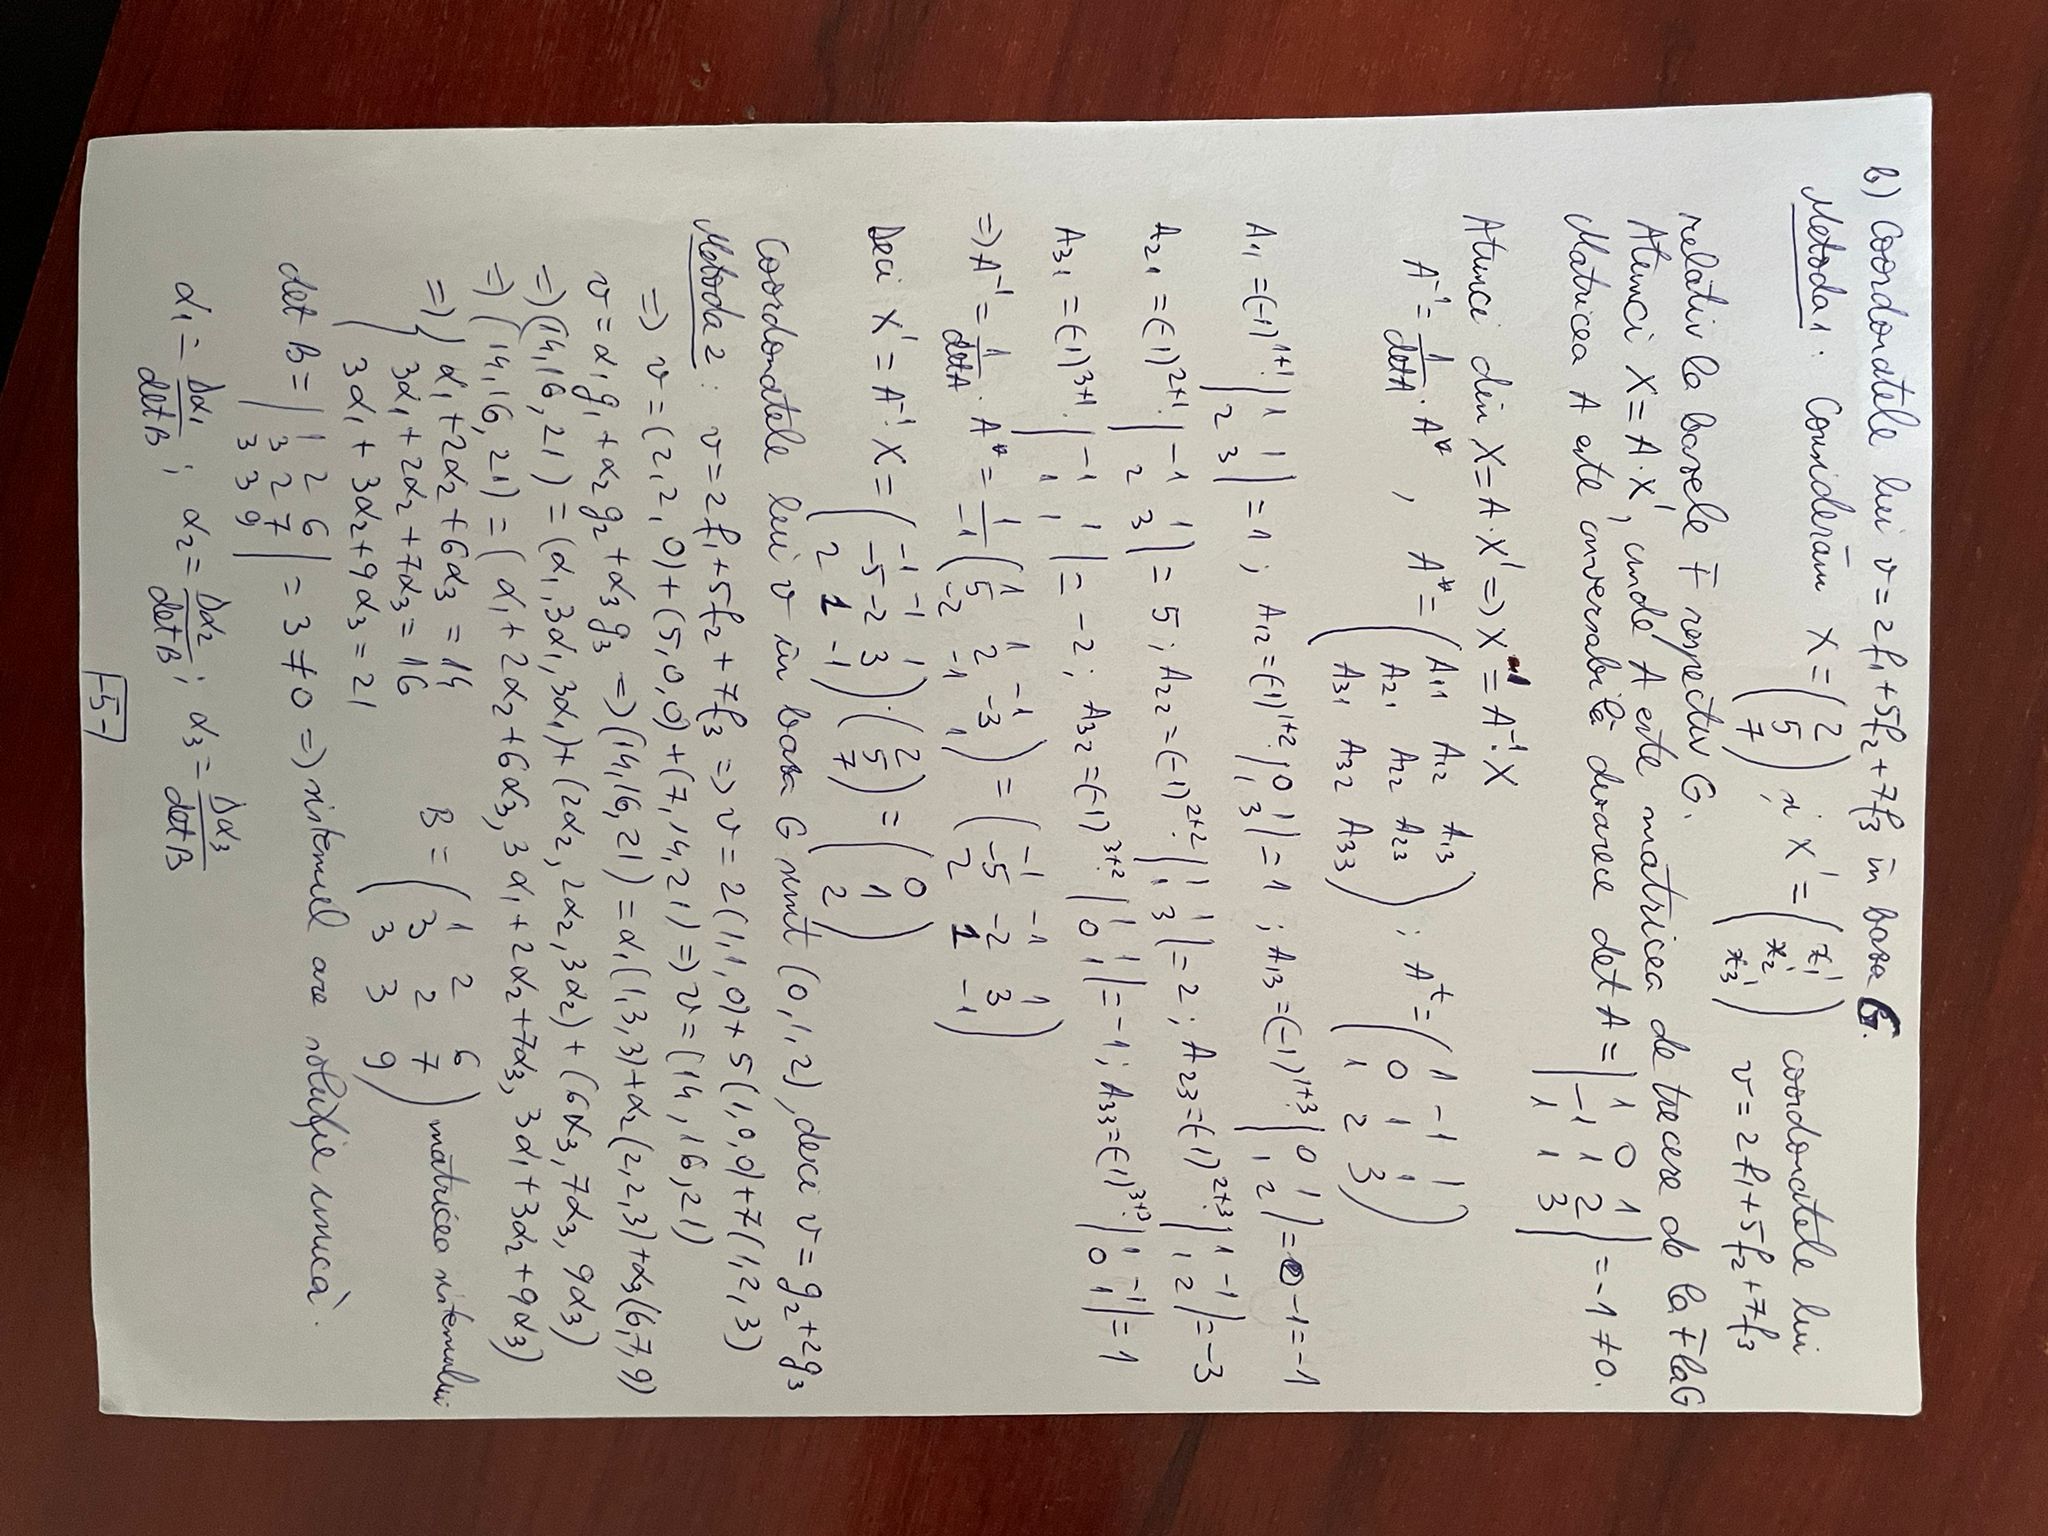 b) Coordonatele lui v = 2f₁ + 5f₂ + 7f₃ în baza G.
Metoda 1: Considerăm X = (2 5 7) ; X' = (x₁' x₂' x₃') coordonatele lui
v = 2f₁ + 5f₂ + 7f₃
relativ la bazele F respectiv G.
Atenci X = A·X', unde A este matricea de trecere de la F la G
Matricea A este inversabilă deoarece det A = | 1 0 1 ; -1 1 2 ; 1 1 3 | = -1 ≠ 0.
Atunci din X = A·X' => X' = A⁻¹·X
A⁻¹ = 1/det A · A* , A* = (A₁₁ A₁₂ A₁₃ ; A₂₁ A₂₂ A₂₃ ; A₃₁ A₃₂ A₃₃) ; Aᵗ = (1 -1 1 ; 0 1 1 ; 1 2 3)
A₁₁ = (-1)¹⁺¹·| 1 1 ; 2 3 | = 1 ; A₁₂ = (-1)¹⁺²·| 0 1 ; 1 3 | = 1 ; A₁₃ = (-1)¹⁺³ | 0 1 ; 1 2 | = 0-1 = -1
A₂₁ = (-1)²⁺¹·| -1 1 ; 2 3 | = 5 ; A₂₂ = (-1)²⁺²·| 1 1 ; 1 3 | = 2 ; A₂₃ = (-1)²⁺³·| 1 -1 ; 1 2 | = -3
A₃₁ = (-1)³⁺¹·| -1 1 ; 1 1 | = -2 ; A₃₂ = (-1)³⁺² | 1 1 ; 0 1 | = -1 ; A₃₃ = (-1)³⁺³·| 1 -1 ; 0 1 | = 1
=> A⁻¹ = 1/det A · A* = 1/-1 (1 1 -1 ; 5 2 -3 ; -2 -1 1) = (-1 -1 1 ; -5 -2 3 ; 2 1 -1)
Deci X' = A⁻¹·X = (-1 -1 1 ; -5 -2 3 ; 2 1 -1)·(2 5 7) = (0 1 2)
Coordonatele lui v în baza G sunt (0,1,2), deci v = g₂ + 2g₃
Metoda 2: v = 2f₁ + 5f₂ + 7f₃ => v = 2(1,1,0) + 5(1,0,0) + 7(1,2,3)
=> v = (2,2,0) + (5,0,0) + (7,14,21) => v = (14,16,21)
v = α₁g₁ + α₂g₂ + α₃g₃ => (14,16,21) = α₁(1,3,3) + α₂(2,2,3) + α₃(6,7,9)
=> (14,16,21) = (α₁,3α₁,3α₁) + (2α₂,2α₂,3α₂) + (6α₃,7α₃,9α₃)
=> (14,16,21) = (α₁+2α₂+6α₃, 3α₁+2α₂+7α₃, 3α₁+3α₂+9α₃)
=> { α₁ + 2α₂ + 6α₃ = 14
3α₁ + 2α₂ + 7α₃ = 16
3α₁ + 3α₂ + 9α₃ = 21
B = (1 2 6 ; 3 2 7 ; 3 3 9) matricea sistemului
det B = | 1 2 6 ; 3 2 7 ; 3 3 9 | = 3 ≠ 0 => sistemul are soluție unică.
α₁ = Δα₁/det B ; α₂ = Δα₂/det B ; α₃ = Δα₃/det B
-5-